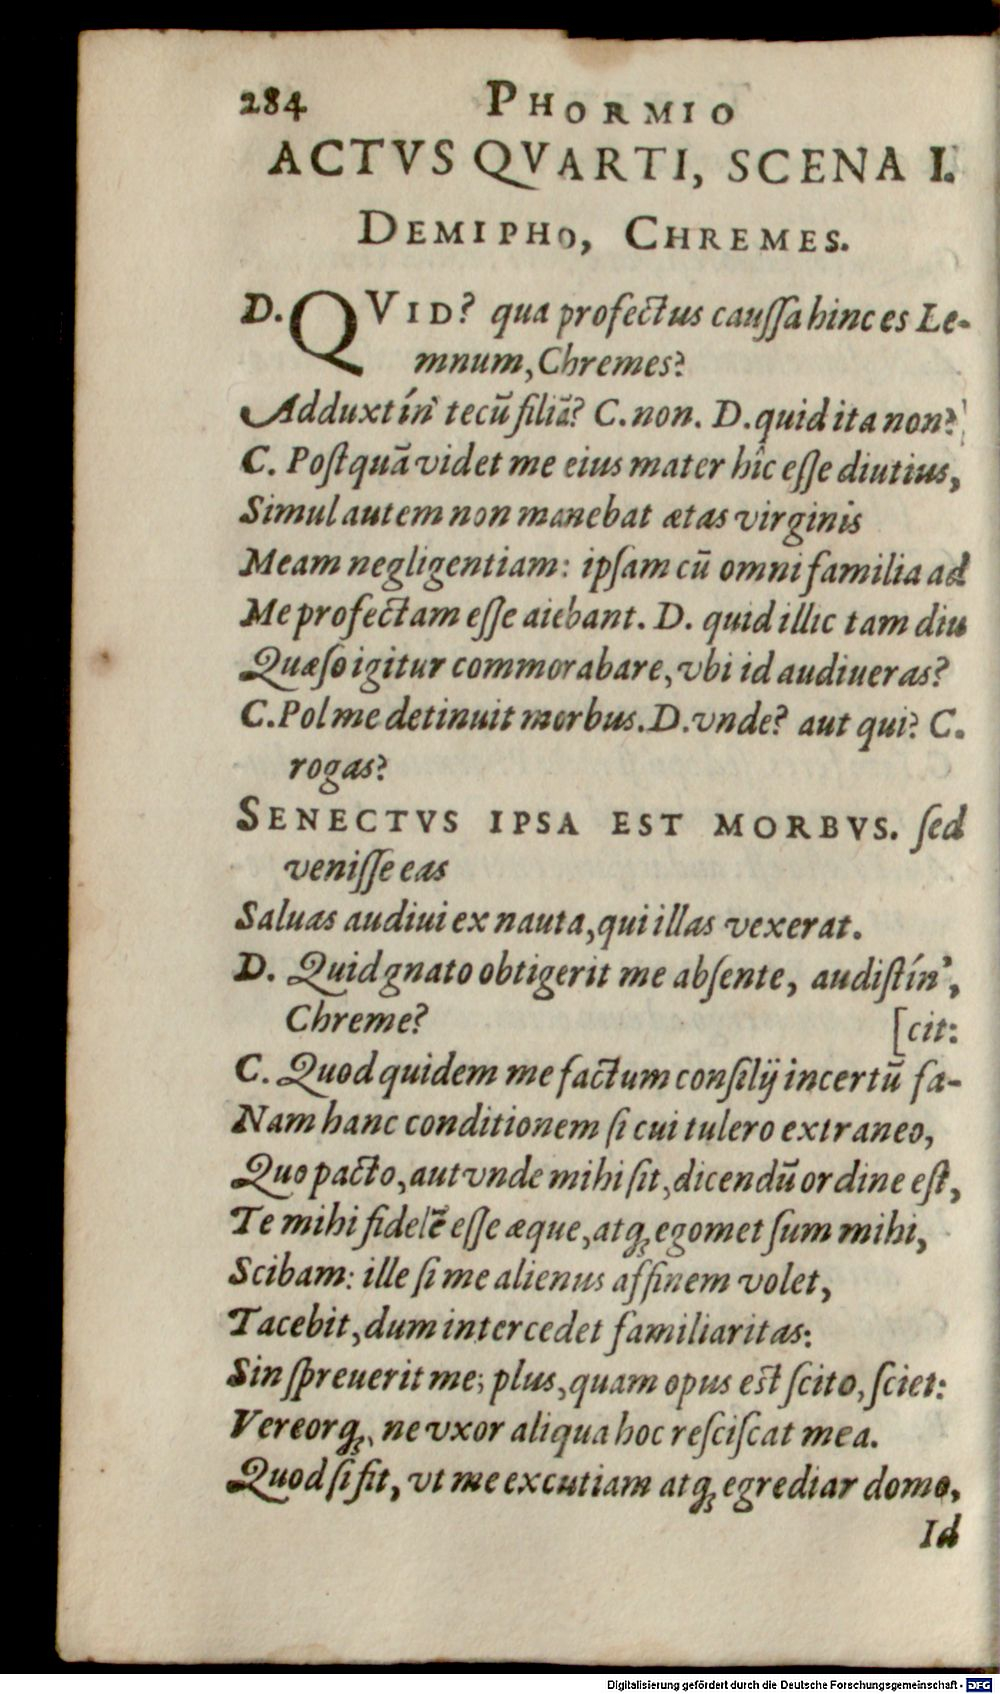 284 PHORMIO
ACTVS QVARTI, SCENA I.
DEMIPHO, CHREMES.
D. QVID? qua profectus cauſſa hinc es Le-
mnum, Chremes?
Adduxtín' tecū filiā? C. non. D. quid ita non?
C. Poſtquā videt me eius mater hîc eſſe diutius,
Simul autem non manebat ætas virginis
Meam negligentiam: ipſam cū omni familia ad
Me profectam eſſe aiebant. D. quid illic tam diu
Quæſo igitur commorabare, vbi id audiueras?
C. Pol me detinuit morbus. D. vnde? aut qui? C.
rogas?
SENECTVS IPSA EST MORBVS. ſed
veniſſe eas
Saluas audiui ex nauta, qui illas vexerat.
D. Quid gnato obtigerit me abſente, audiſtín',
Chreme? [cit:
C. Quod quidem me factum conſilij incertū fa-
Nam hanc conditionem ſi cui tulero extraneo,
Quo pacto, aut vnde mihi ſit, dicendū ordine eſt,
Te mihi fidelē eſſe æque, atq; egomet ſum mihi,
Scibam: ille ſi me alienus affinem volet,
Tacebit, dum intercedet familiaritas:
Sin ſpreuerit me; plus, quam opus eſt ſcito, ſciet:
Vereorq;, ne vxor aliqua hoc reſciſcat mea.
Quod ſi fit, vt me excutiam atq; egrediar domo,
Id
Digitalisierung gefördert durch die Deutsche Forschungsgemeinschaft - DFG